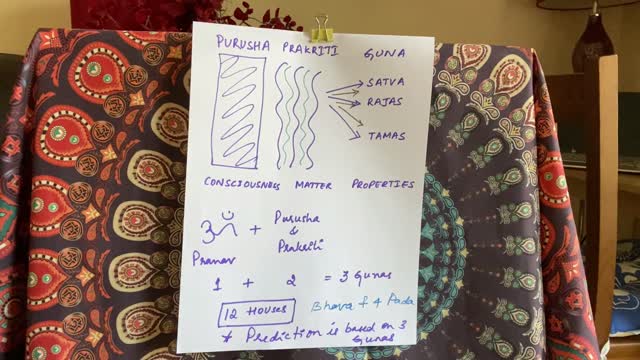 PURUSHA PRAKRITI GUNA
SATVA
RAJAS
TAMAS
CONSCIOUSNESS MATTER PROPERTIES
ॐ + Purusha
& 
Prakriti
Pranav
1 + 2 = 3 Gunas
12 HOUSES
Bhava f 4 Pada
* Prediction is based on 3
Gunas